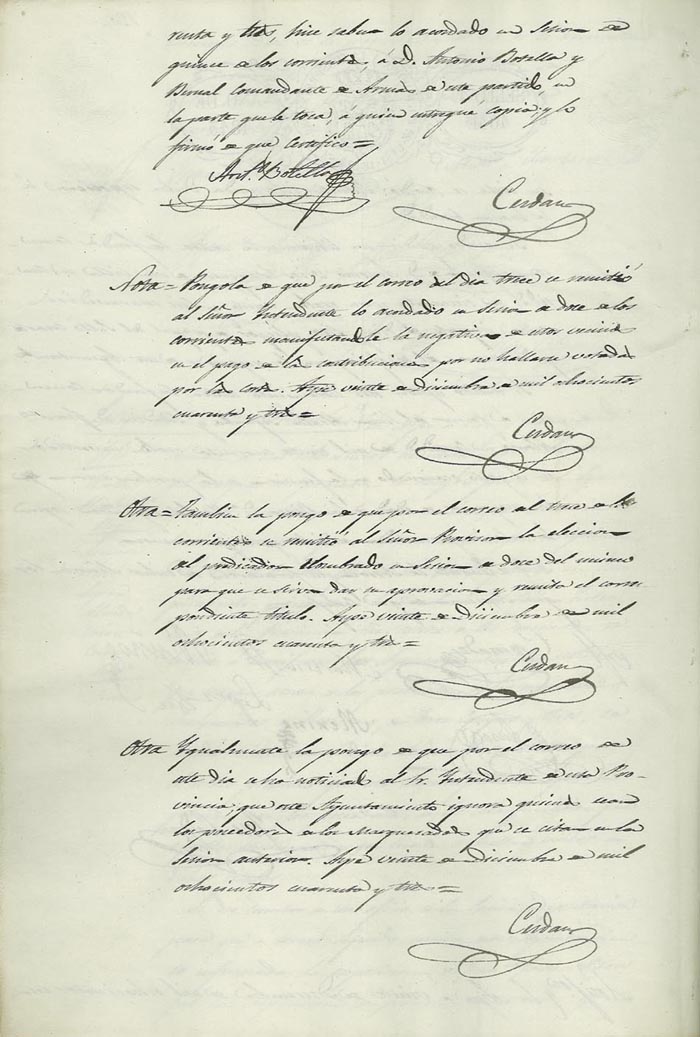 renta y tres, hice saber lo acordado en Sesion de
quince de los corrientes, á D. Antonio Botella y
Bernal Comandante de Armas de este partido, en
la parte que le toca, á quien entregué copia, y lo
firmó de que certifico =
Ant.º Botella
Cerdan
Nota = Pongola de que por el correo del dia trece se remitió
al Señor Yntendente lo acordado en Sesion de doce de los
corrientes manifestandole la negativa de estos vecinos
en el pago de las contribuciones por no hallarse votadas
por las Cortes. Aspe veinte de Diciembre de mil ochocientos
cuarenta y tres =
Cerdan
Otra = Tambien la pongo de que por el correo del trece de los
corrientes se remitió al Señor Provisor la eleccion
del predicador nombrado en Sesion de doce del mismo
para que se sirva dar su aprovacion y remita el corres-
pondiente titulo. Aspe veinte de Diciembre de mil
ochocientos cuarenta y tres =
Cerdan
Otra Ygualmente la pongo de que por el correo de
este dia se ha noticiado al Sr. Yntendente de esta Pro-
vincia, que este Ayuntamiento ignora quienes sean
los poseedores de los que se citan en la
Sesion anterior. Aspe veinte de Diciembre de mil
ochocientos cuarenta y tres =
Cerdan